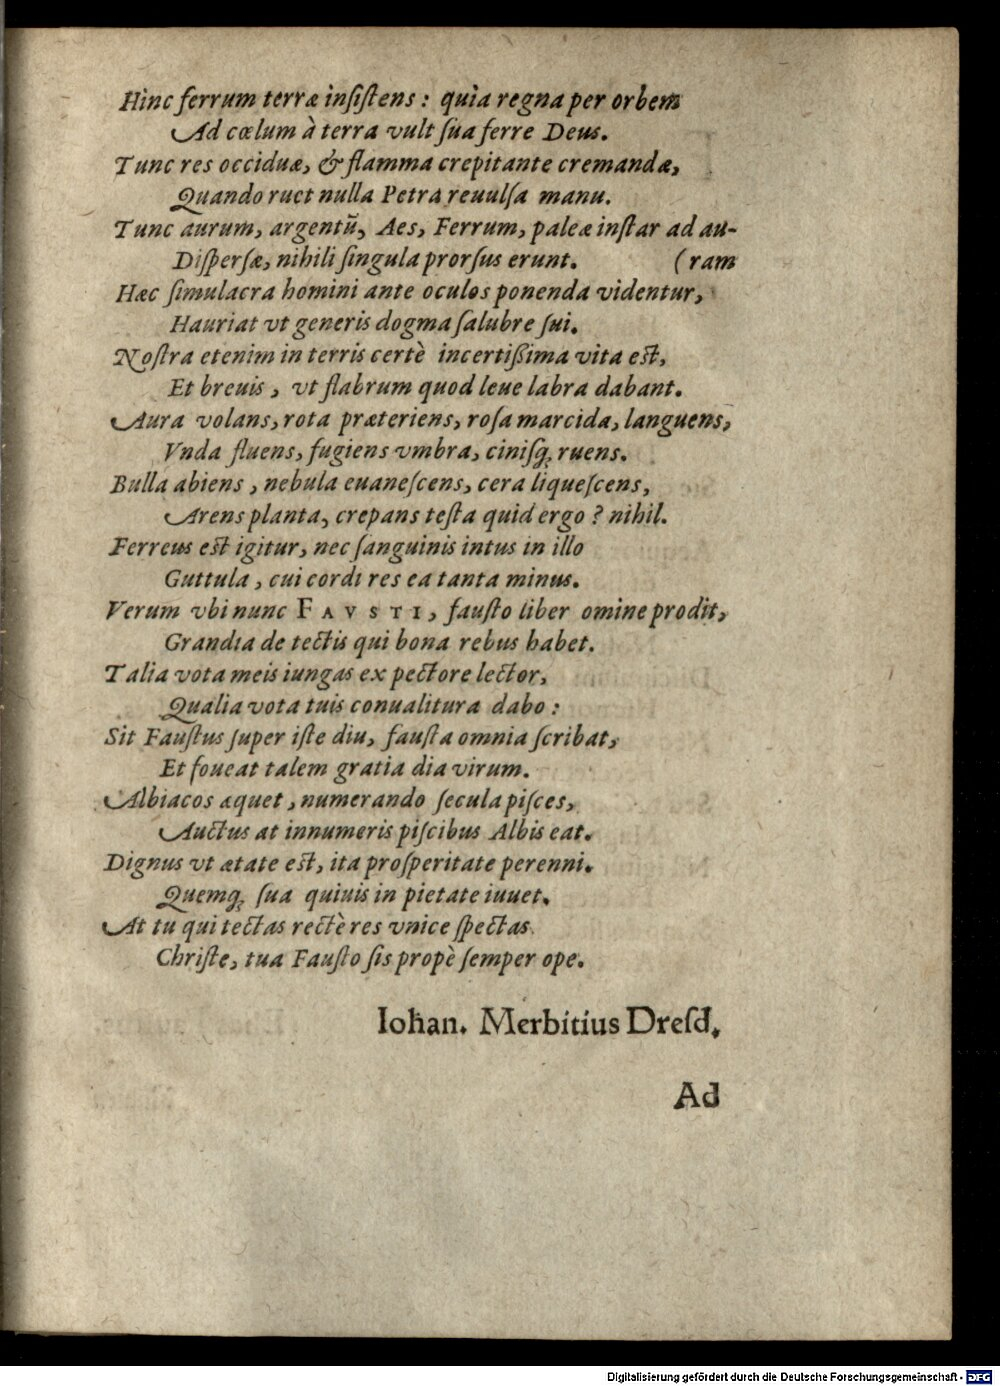 Hinc ferrum terræ inſiſtens: quia regna per orbem
Ad cœlum à terra vult ſua ferre Deus.
Tunc res occiduæ, & flamma crepitante cremandæ,
Quando ruet nulla Petra reuulſa manu.
Tunc aurum, argentũ, Aes, Ferrum, paleæ inſtar ad au-
Diſperſæ, nihili ſingula prorſus erunt. (ram
Hæc ſimulacra homini ante oculos ponenda videntur,
Hauriat vt generis dogma ſalubre ſui.
Noſtra etenim in terris certè incertißima vita eſt,
Et breuis, vt flabrum quod leue labra dabant.
Aura volans, rota præteriens, roſa marcida, languens,
Vnda fluens, fugiens vmbra, ciniſq; ruens.
Bulla abiens, nebula euaneſcens, cera liqueſcens,
Arens planta, crepans teſta quid ergo? nihil.
Ferreus eſt igitur, nec ſanguinis intus in illo
Guttula, cui cordi res ea tanta minus.
Verum vbi nunc FAVSTI, fauſto liber omine prodit,
Grandia de tectis qui bona rebus habet.
Talia vota meis iungas ex pectore lector,
Qualia vota tuis conualitura dabo:
Sit Fauſtus ſuper iſte diu, fauſta omnia ſcribat,
Et foueat talem gratia dia virum.
Albiacos æquet, numerando ſecula piſces,
Auctus at innumeris piſcibus Albis eat.
Dignus vt ætate eſt, ita proſperitate perenni.
Quemq; ſua quiuis in pietate iuuet.
At tu qui tectas rectè res vnice ſpectas
Chriſte, tua Fauſto ſis propè ſemper ope.
Iohan. Merbitius Dreſd.
Ad
Digitalisierung gefördert durch die Deutsche Forschungsgemeinschaft - DFG